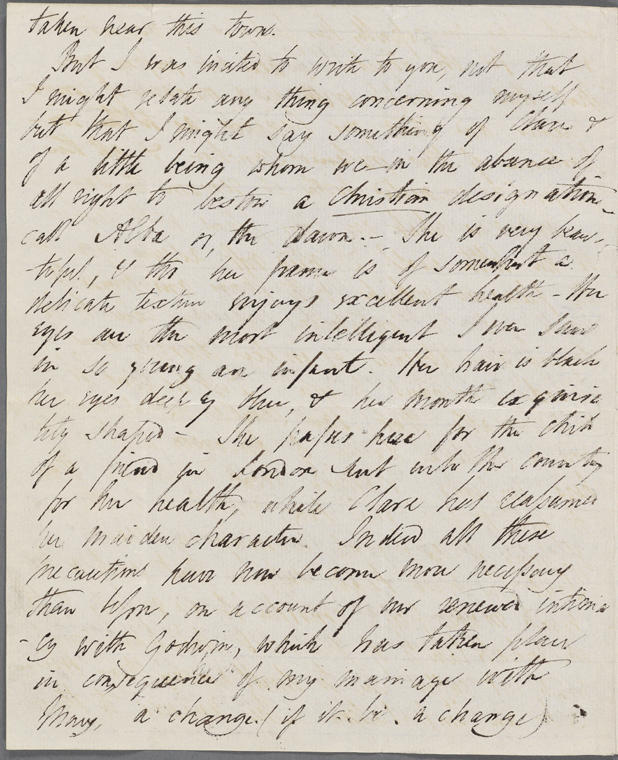 taken near this town.
But I was incited to write to you, not that
I might relate any thing concerning myself
but that I might say something of Clare &
of a little being whom we — in the absence of
all right to bestow a Christian designation —
call Alba or, the Dawn. — She is very beau-
tiful, & tho her frame is of somewhat a
delicate texture enjoys excellent health — Her
eyes are the most intelligent I ever saw
in so young an infant. Her hair is black
her eyes deeply blue, & her mouth exquisi
tely shaped — She passes here for the child
of a friend in London sent into the country
for her health, while Clare has reassumed
her maiden character. Indeed all these
precautions have now become more necessary
than before, on account of our renewed intima
-cy with Godwin, which has taken place
in consequence of my marriage with
Mary, a change (if it be a change)